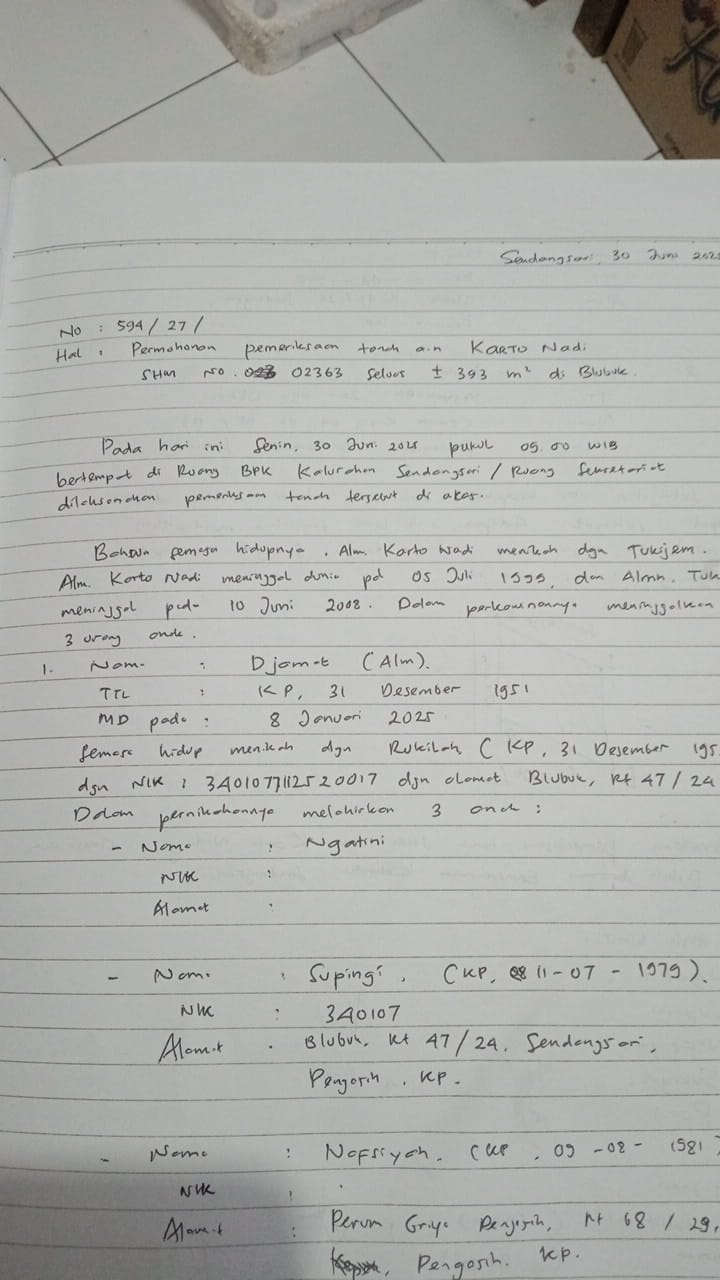 Sendangsari, 30 Juni 2025
No : 594 / 27 /
Hal : Permohonan pemeriksaan tanah a.n KARTO Nadi
SHM No. 02363 seluas ± 393 m² di Blubuk.
Pada hari ini Senin, 30 Juni 2025 pukul 09.00 WIB
bertempat di Ruang BPK Kalurahan Sendangsari / Ruang Sekretariat
dilaksanakan pemeriksaan tanah tersebut di atas.
Bahwa semasa hidupnya, Alm. Karto Nadi menikah dgn Tukijem.
Alm. Karto Nadi meninggal dunia pd 05 Juli 1999, dan Almh. Tuk
meninggal pada 10 Juni 2008. Dalam perkawinannya meninggalkan
3 orang anak.
1. Nama : Djamat (Alm).
TTL : KP, 31 Desember 1951
MD pada : 8 Januari 2025
Semasa hidup menikah dgn Rukilah, ( KP, 31 Desember 195
dgn NIK : 3401077112520017 dgn alamat Blubuk, Rt 47 / 24
Dalam pernikahannya melahirkan 3 anak :
- Nama : Ngatini
NIK :
Alamat :
- Nama : Supingi, (KP, 11-07-1979).
NIK : 340107
Alamat : Blubuk, Rt 47 / 24, Sendangsari,
Pengasih, KP.
- Nama : Nafsiyah, (KP, 09-08-1981
NIK :
Alamat : Perum Griya Pengasih, Rt 68 / 29,
Pengasih. KP.